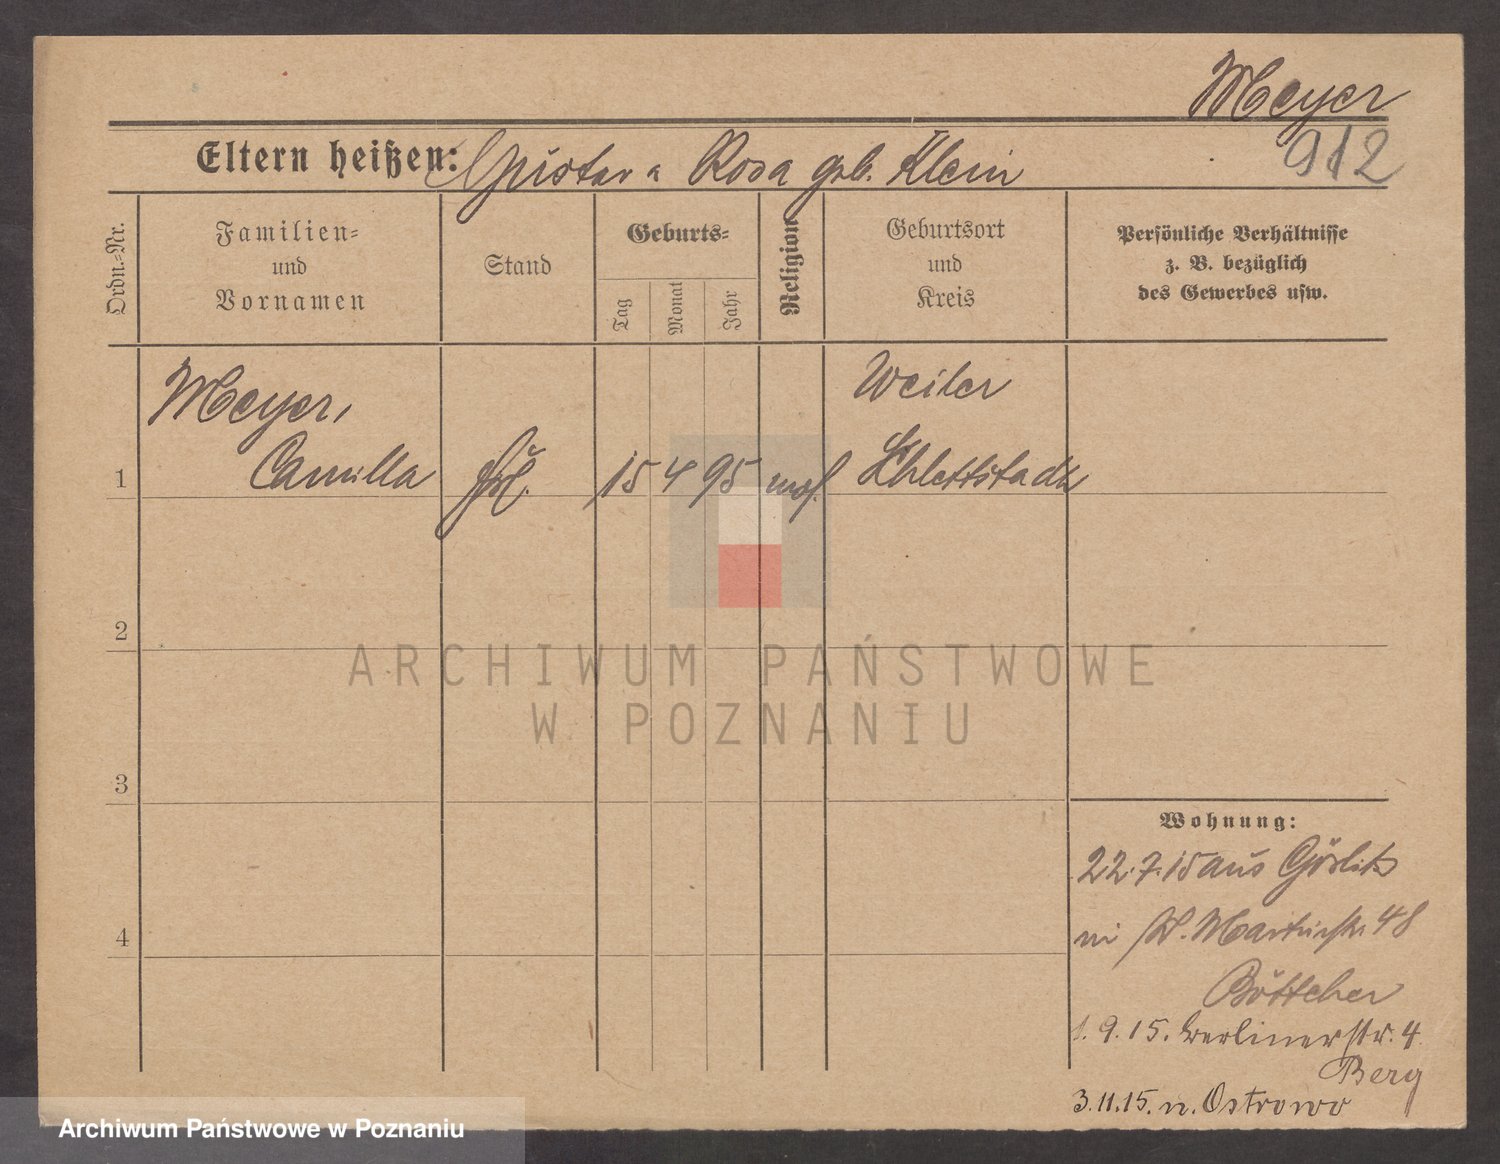 Meyer
912
Eltern heißen: Gustav u Rosa geb. Klein
Ordn.-Nr.
Familien-
und
Vornamen
Stand
Geburts-
Tag
Monat
Jahr
Religion
Geburtsort
und
Kreis
Persönliche Verhältnisse
z. B. bezüglich
des Gewerbes usw.
Meyer,
Camilla
frl.
15 4 95
mos.
Weiler
Schlettstadt
1
2
3
4
ARCHIWUM PAŃSTWOWE
W POZNANIU
Wohnung:
22.7.15 aus Görlitz
in St. Martinstr. 48
Böttcher
1.9.15. Berlinerstr. 4
Berg
3.11.15. n. Ostrowo
Archiwum Państwowe w Poznaniu